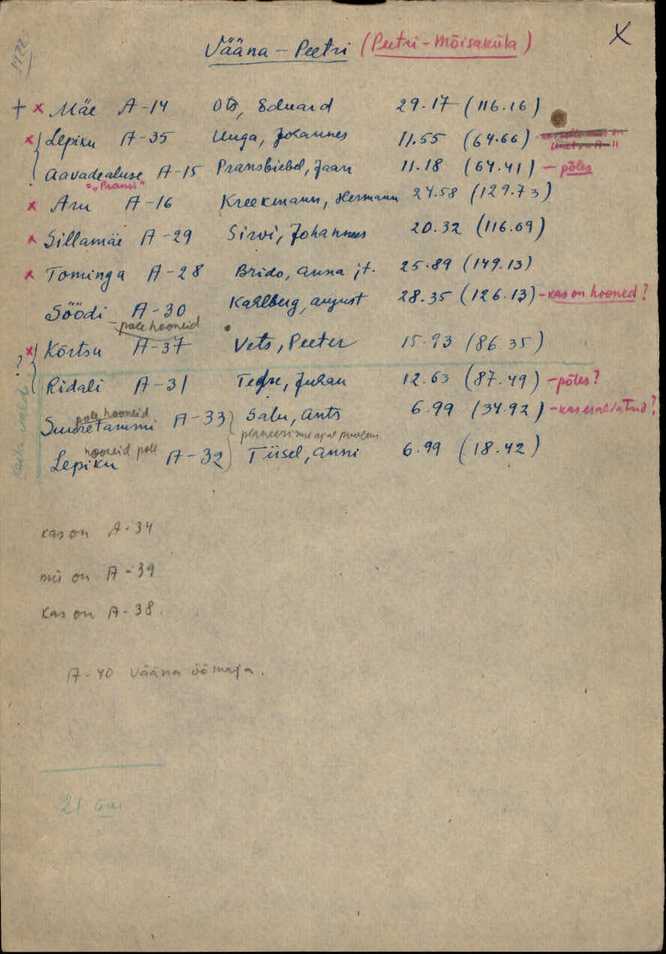 1922
Vääna-Peetri (Peetri-Mõisaküla) X
+ x Mäe A-14 Ots, Eduard 29.17 (116.16)
x Lepiku A-35 Unga, Johannes 11.55 (64.66) -
Aavadealuse A-15 Pransbiebel, Jaan 11.18 (64.41) - põles
"Pransi"
x Aru A-16 Kreekmann, Hermann 24.58 (129.73)
x Sillamäe A-29 Sirvi, Johannes 20.32 (116.09)
x Tominga A-28 Brido, Anna j.t. 25.89 (149.13)
Söödi A-30 Kahlberg, August 28.35 (126.13) - kas on hooned?
- pole hooneid
x Kõrtsu A-37 Vets, Peeter 15.93 (86.35)
? Ridali A-31 Juhan 12.63 (87.49) - põles?
pole hooneid
Suuretammi A-33 Salu, Ants 6.99 (34.92)
hooneid pole
Lepiku A-32 Tiisel, Anni 6.99 (18.42)
kas on A-34
mis on A-39
kas on A-38.
A-40 Vääna öömaja.
21